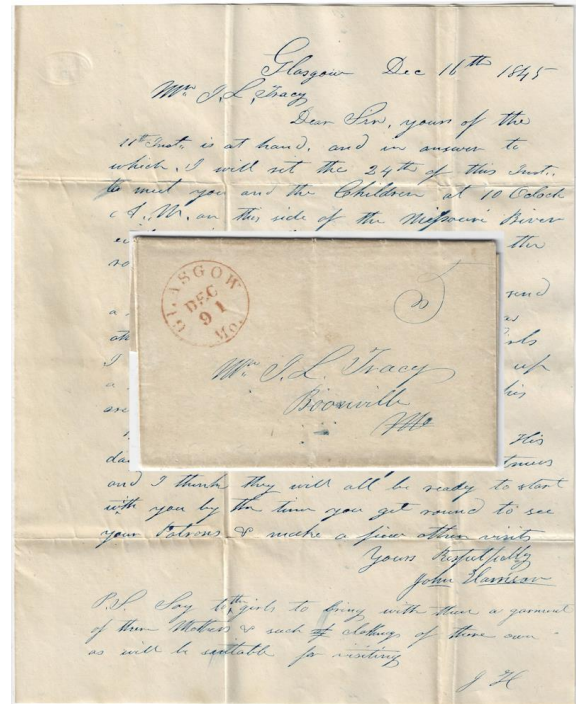 Glasgow Dec 16th 1845
Mr J. L. Tracy
Dear Sir, yours of the
11th Inst. is at hand, and in answer to
which, I will set the 24th of this Inst.
to meet you and the Children at 10 Oclock
A. M. on this side of the Missouri River
the
send
I
up
a
His
and I think they will all be ready to start
with you by the time you get round to see
your Patrons & make a few other visits
Yours Respectfully
John Harrison
P.S. Say to the girls to bring with them a garment
of their Mothers & such of clothing of there own
as will be suitable for visiting
J H
GLASGOW Mo.
DEC
21
5
Mr J. L. Tracy
Boonville
Mo